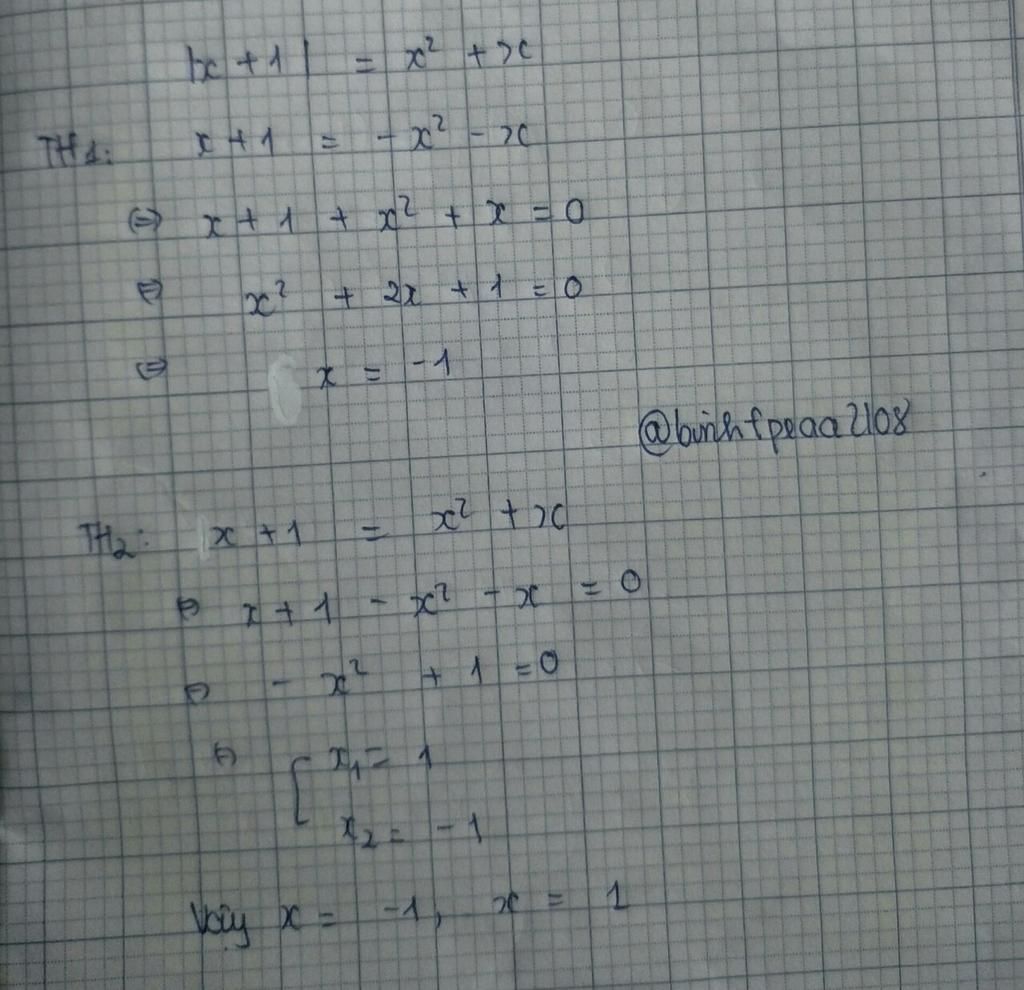 |x + 1| = x² + x
TH1: x + 1 = - x² - x
⇔ x + 1 + x² + x = 0
⇔ x² + 2x + 1 = 0
⇔ x = -1
@binhfpeaa2108
TH2: x + 1 = x² + x
⇔ x + 1 - x² - x = 0
⇔ - x² + 1 = 0
⇔ [ x₁ = 1
x₂ = -1
Vậy x = -1, x = 1